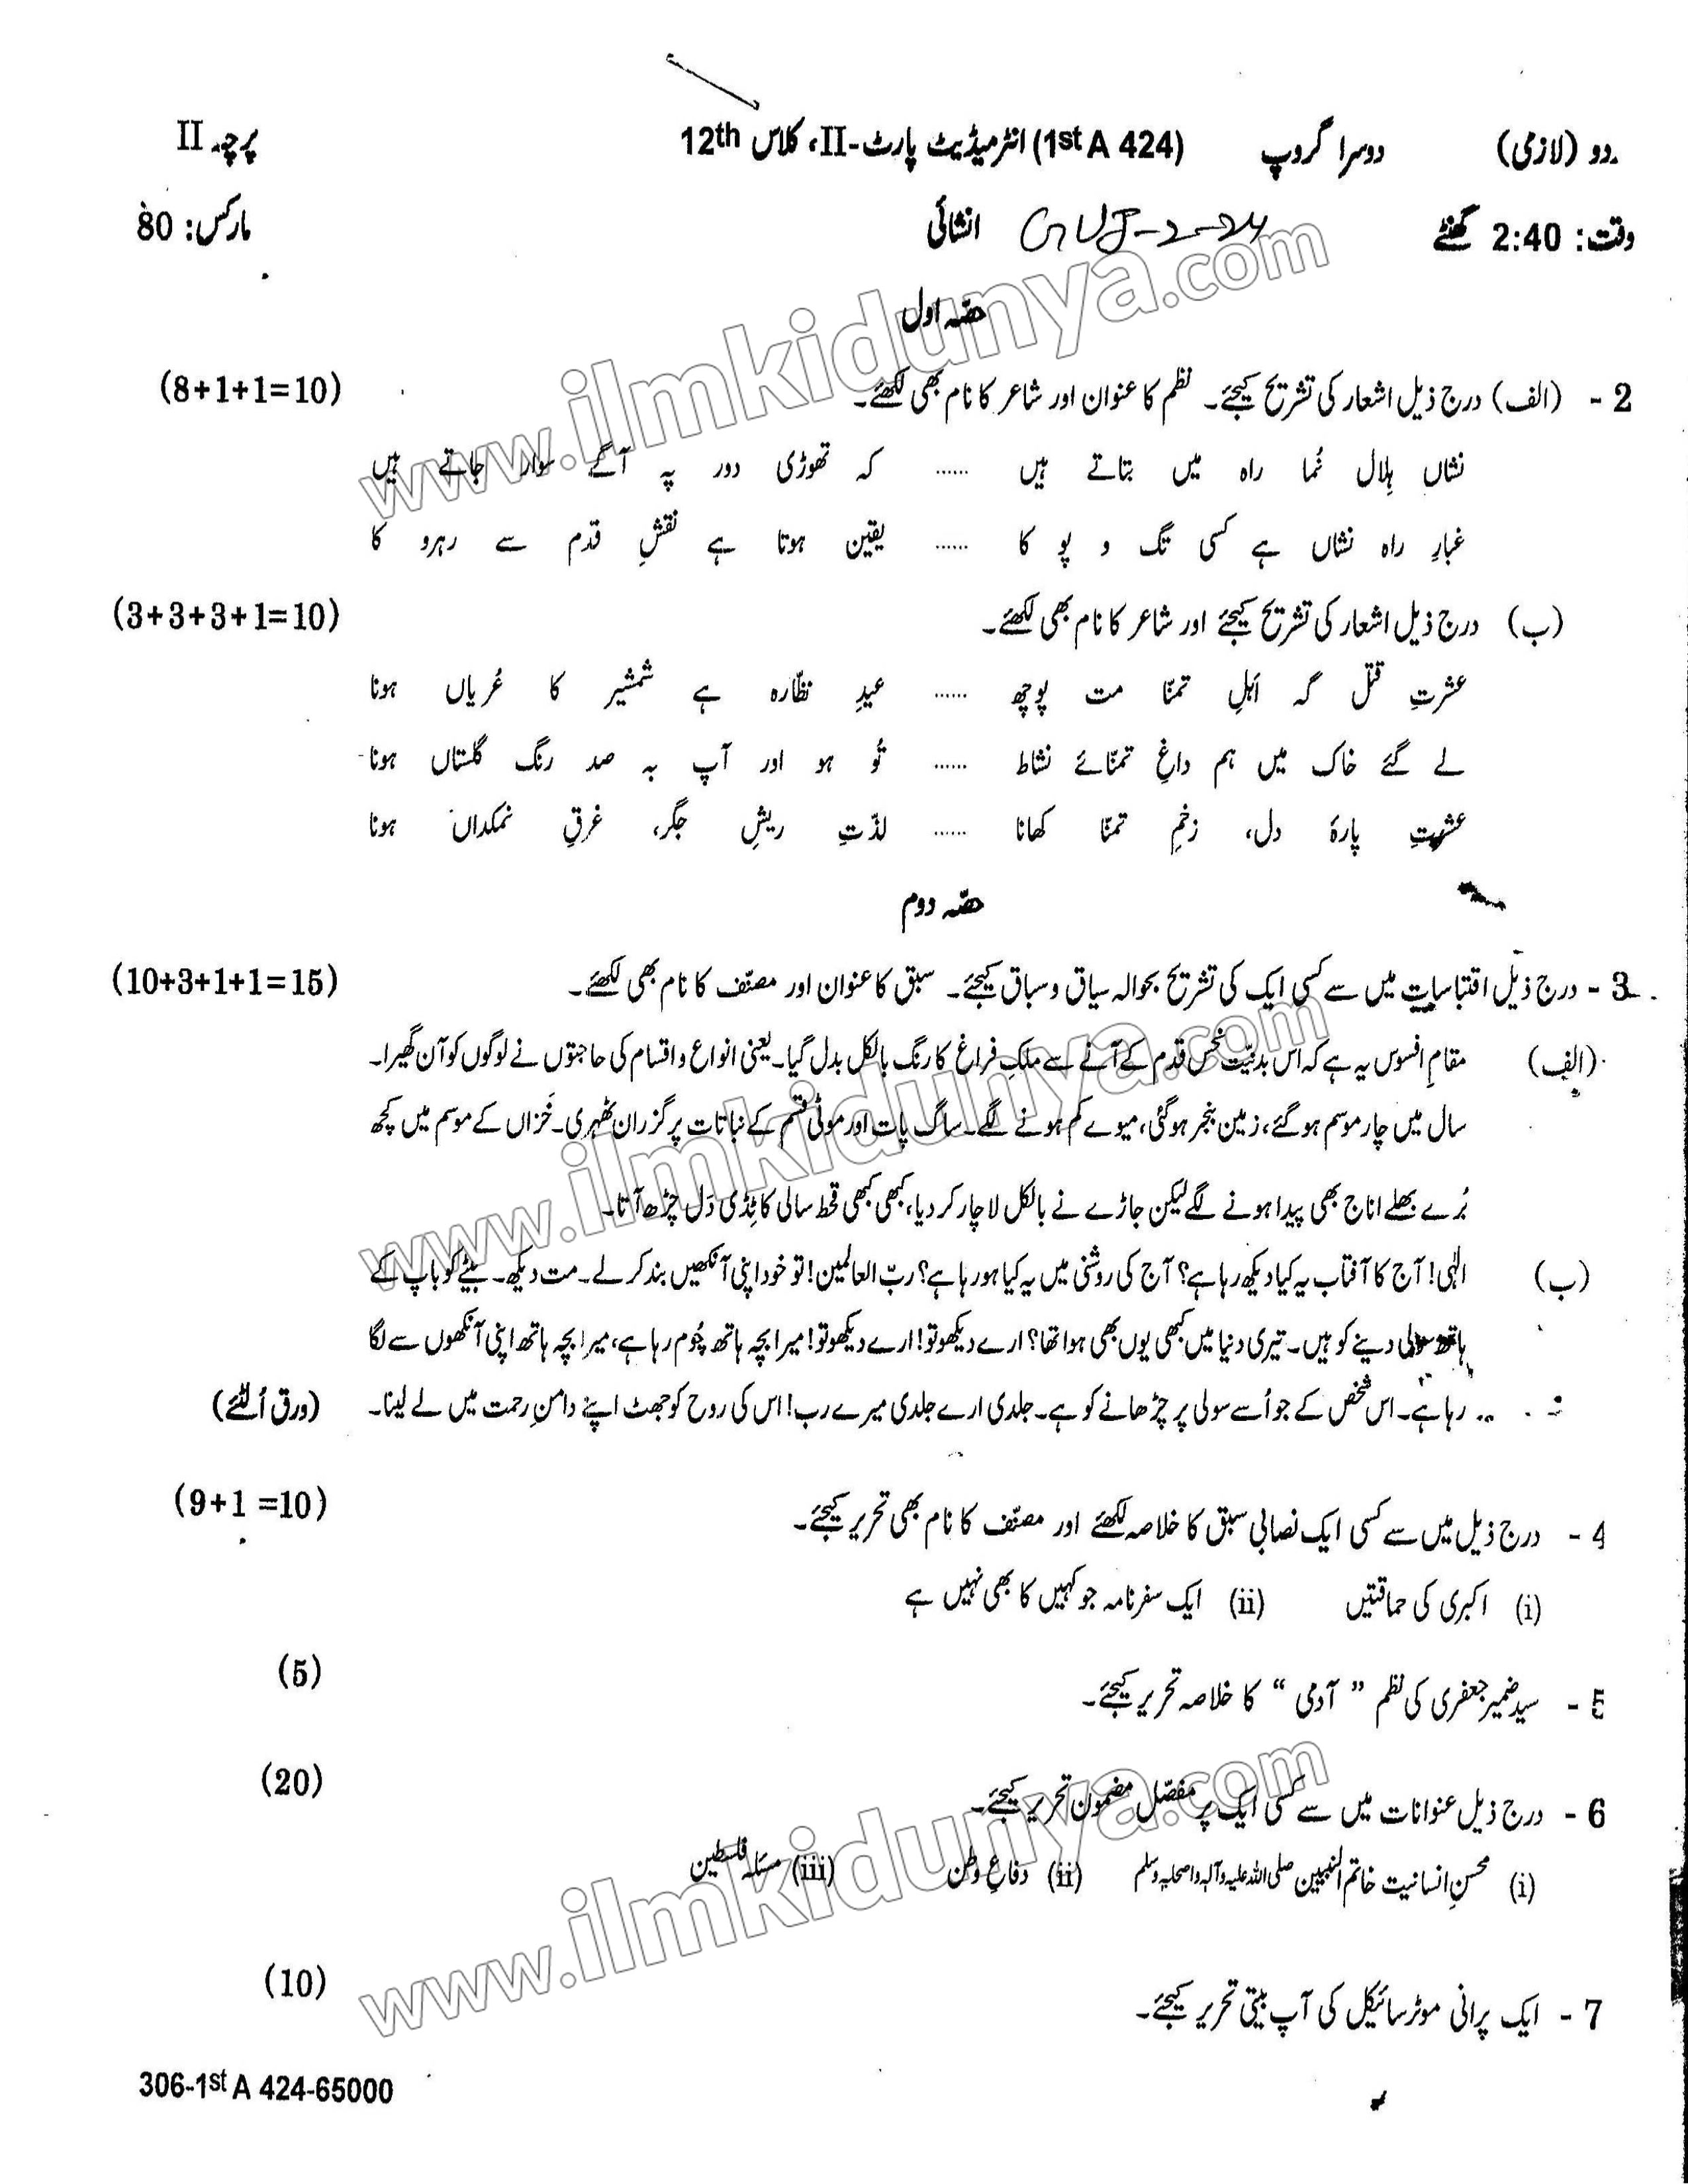 ردو (لازمی) دوسرا گروپ (1st A 424) انٹرمیڈیٹ پارٹ-II، کلاس 12th پرچہ II
وقت: 2:40 گھنٹے GUJ-2-24 انشائی مارکس: 80
حصّہ اول
2 - (الف) درج ذیل اشعار کی تشریح کیجئے۔ نظم کا عنوان اور شاعر کا نام بھی لکھئے۔ (8+1+1=10)
نشاں ہِلال نُما راہ میں بتاتے ہیں ...... کہ تھوڑی دور پہ آگے سوار جاتے ہیں
غبارِ راہ نشاں ہے کسی تگ و پو کا ...... یقین ہوتا ہے نقشِ قدم سے رہرو کا
(ب) درج ذیل اشعار کی تشریح کیجئے اور شاعر کا نام بھی لکھئے۔ (3+3+3+1=10)
عشرتِ قتل گہ اہلِ تمنّا مت پوچھ ...... عیدِ نظّارہ ہے شمشیر کا عُریاں ہونا
لے گئے خاک میں ہم داغِ تمنّائے نشاط ...... تُو ہو اور آپ بہ صد رنگ گلستاں ہونا
عشرتِ پارۂ دل، زخمِ تمنّا کھانا ...... لذّتِ ریشِ جگر، غرقِ نمکداں ہونا
حصّہ دوم
3 - درج ذیل اقتباسات میں سے کسی ایک کی تشریح بحوالہ سیاق و سباق کیجئے۔ سبق کا عنوان اور مصنّف کا نام بھی لکھئے۔ (10+3+1+1=15)
(الف) مقامِ افسوس یہ ہے کہ اس بدنیّت نحس قدم کے آنے سے ملکِ فراغ کا رنگ بالکل بدل گیا۔ یعنی انواع و اقسام کی حاجتوں نے لوگوں کو آن گھیرا۔
سال میں چار موسم ہو گئے، زمین بنجر ہو گئی، میوے کم ہونے لگے۔ ساگ پات اور موٹی قسم کے نباتات پر گزران ٹھہری۔ خَزاں کے موسم میں کچھ
بُرے بھلے اناج بھی پیدا ہونے لگے لیکن جاڑے نے بالکل لاچار کر دیا، کبھی کبھی قحط سالی کا ٹِڈی دَل چڑھ آتا۔
(ب) الٰہی! آج کا آفتاب یہ کیا دیکھ رہا ہے؟ آج کی روشنی میں یہ کیا ہو رہا ہے؟ ربّ العالمین! تو خود اپنی آنکھیں بند کر لے۔ مت دیکھ۔ بیٹے کو باپ کے
ہاتھ سولی دینے کو ہیں۔ تیری دنیا میں کبھی یوں بھی ہوا تھا؟ ارے دیکھو تو! ارے دیکھو تو! میرا بچہ ہاتھ چُوم رہا ہے، میرا بچہ ہاتھ اپنی آنکھوں سے لگا
رہا ہے۔ اس شخص کے جو اُسے سولی پر چڑھانے کو ہے۔ جلدی ارے جلدی میرے رب! اس کی روح کو جھٹ اپنے دامنِ رحمت میں لے لینا۔ (ورق اُلٹئے)
4 - درج ذیل میں سے کسی ایک نصابی سبق کا خلاصہ لکھئے اور مصنّف کا نام بھی تحریر کیجئے۔ (9+1 =10)
(i) اکبری کی حماقتیں (ii) ایک سفرنامہ جو کہیں کا بھی نہیں ہے
5 - سید ضمیر جعفری کی نظم ” آدمی “ کا خلاصہ تحریر کیجئے۔ (5)
6 - درج ذیل عنوانات میں سے کسی ایک پر مفصّل مضمون تحریر کیجئے۔ (20)
(i) محسنِ انسانیت خاتم النبیین صلی اللہ علیہ وآلہ واصحابہ وسلم (ii) دفاعِ وطن (iii) مسئلہ فلسطین
7 - ایک پرانی موٹر سائیکل کی آپ بیتی تحریر کیجئے۔ (10)
306-1st A 424-65000
www.ilmkidunya.com
www.ilmkidunya.com
www.ilmkidunya.com